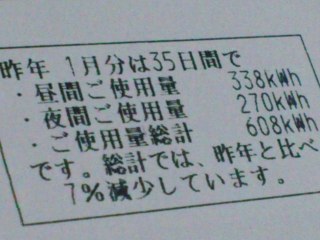 昨年 1月分は35日間で
・昼間ご使用量 338kWh
・夜間ご使用量 270kWh
・ご使用量総計 608kWh
です。総計では、昨年と比べ
7%減少しています。